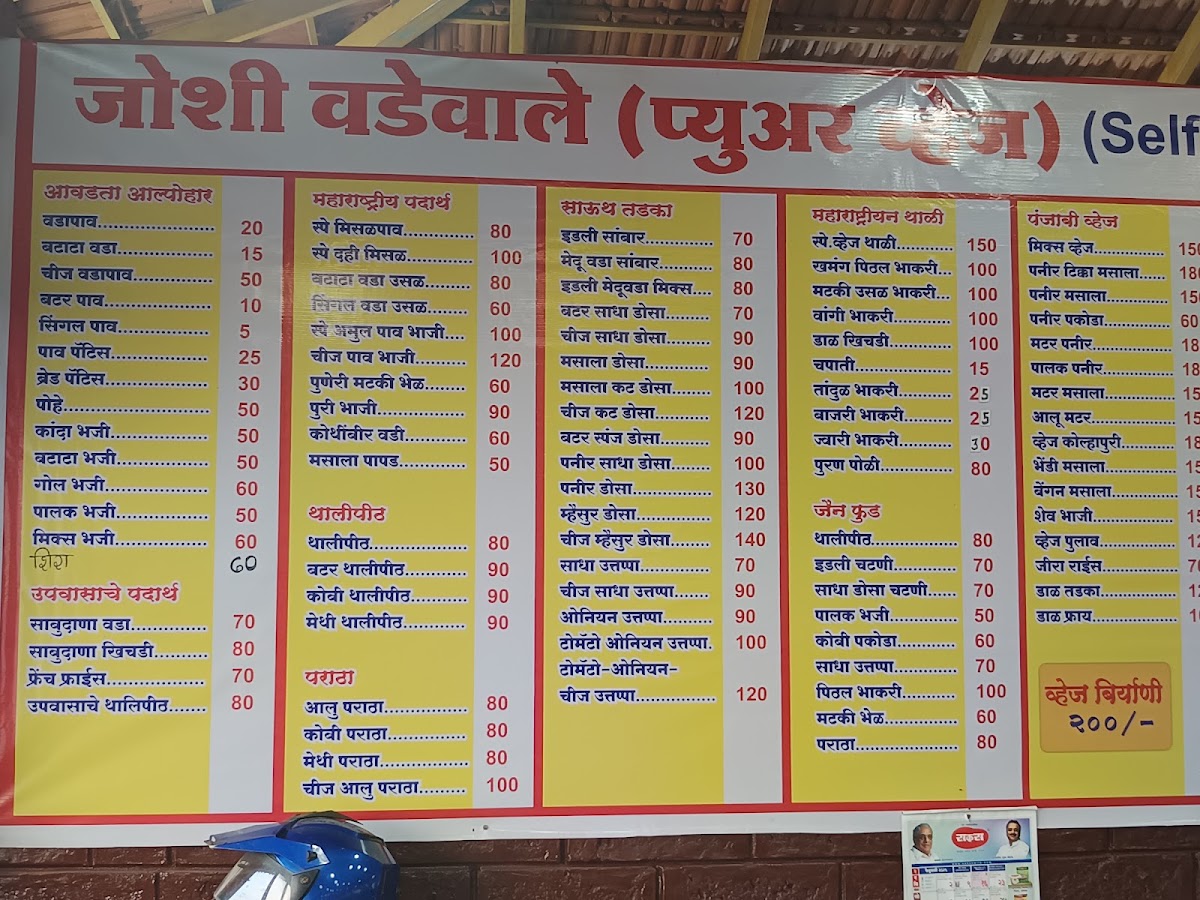 जोशी वडेवाले (प्युअर व्हेज) (Self
आवडता आल्पोहार
वडापाव 20
बटाटा वडा 15
चीज वडापाव 50
बटर पाव 10
सिंगल पाव 5
पाव पॅटिस 25
ब्रेड पॅटिस 30
पोहे 50
कांदा भजी 50
बटाटा भजी 50
गोल भजी 60
पालक भजी 50
मिक्स भजी 60
शिरा 60
उपवासाचे पदार्थ
साबुदाणा वडा 70
साबुदाणा खिचडी 80
फ्रेंच फ्राईस 70
उपवासाचे थालिपीठ 80
महाराष्ट्रीय पदार्थ
स्पे मिसळपाव 80
स्पे दही मिसळ 100
बटाटा वडा उसळ 80
सिंगल वडा उसळ 60
स्पे अमुल पाव भाजी 100
चीज पाव भाजी 120
पुणेरी मटकी भेळ 60
पुरी भाजी 90
कोथींबीर वडी 60
मसाला पापड 50
थालीपीठ
थालीपीठ 80
बटर थालीपीठ 90
कोबी थालीपीठ 90
मेथी थालीपीठ 90
पराठा
आलु पराठा 80
कोबी पराठा 80
मेथी पराठा 80
चीज आलु पराठा 100
साऊथ तडका
इडली सांबार 70
मेदू वडा सांबार 80
इडली मेदूवडा मिक्स 80
बटर साधा डोसा 70
चीज साधा डोसा 90
मसाला डोसा 90
मसाला कट डोसा 100
चीज कट डोसा 120
बटर स्पंज डोसा 90
पनीर साधा डोसा 100
पनीर डोसा 130
म्हैसुर डोसा 120
चीज म्हैसुर डोसा 140
साधा उत्तप्पा 70
चीज साधा उत्तप्पा 90
ओनियन उत्तप्पा 90
टोमॅटो ओनियन उत्तप्पा 100
टोमॅटो-ओनियन-
चीज उत्तप्पा 120
महाराष्ट्रीयन थाळी
स्पे.व्हेज थाळी 150
खमंग पिठल भाकरी 100
मटकी उसळ भाकरी 100
वांगी भाकरी 100
डाळ खिचडी 100
चपाती 15
तांदुळ भाकरी 25
बाजरी भाकरी 25
ज्वारी भाकरी 30
पुरण पोळी 80
जैन फुड
थालीपीठ 80
इडली चटणी 70
साधा डोसा चटणी 70
पालक भजी 50
कोबी पकोडा 60
साधा उत्तप्पा 70
पिठल भाकरी 100
मटकी भेळ 60
पराठा 80
पंजाबी व्हेज
मिक्स व्हेज 150
पनीर टिक्का मसाला 180
पनीर मसाला 150
पनीर पकोडा 60
मटर पनीर 18
पालक पनीर 18
मटर मसाला 15
आलू मटर 15
व्हेज कोल्हापुरी 18
भेंडी मसाला 15
बेंगन मसाला 15
शेव भाजी 15
व्हेज पुलाव 12
जीरा राईस 70
डाळ तडका 12
डाळ फ्राय 10
व्हेज बिर्याणी
२००/-